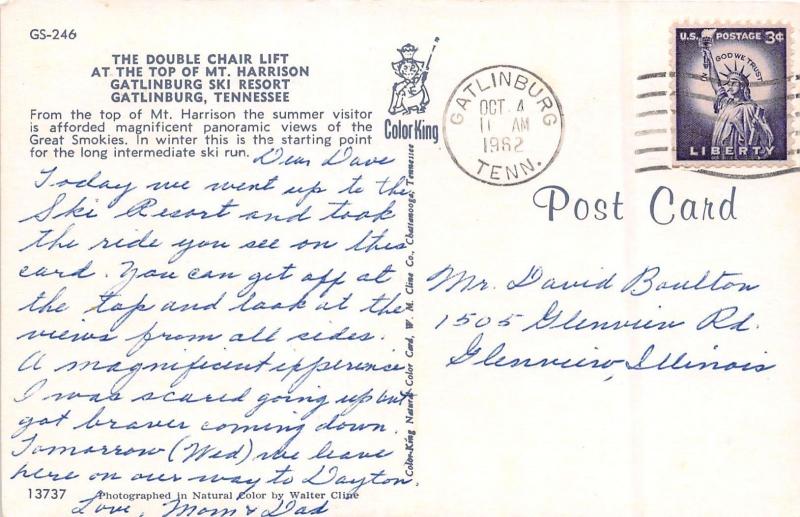 GS-246
THE DOUBLE CHAIR LIFT
AT THE TOP OF MT. HARRISON
GATLINBURG SKI RESORT
GATLINBURG, TENNESSEE
From the top of Mt. Harrison the summer visitor
is afforded magnificent panoramic views of the
Great Smokies. In winter this is the starting point
for the long intermediate ski run.
Dear Dave
Today we went up to the
Ski Resort and took
the ride you see on this
card. You can get off at
the top and look at the
views from all sides.
A magnificent ipperience
I was scared going up but
got braver coming down.
Tomorrow (Wed) we leave
here on our way to Dayton.
13737 Photographed in Natural Color by Walter Cline
Love, Mom & Dad
Color King
Color-King Natural Color Card, W. M. Cline Co., Chattanooga, Tennessee
GATLINBURG
OCT 4
11 AM
1962
TENN.
U.S. POSTAGE 3¢
IN GOD WE TRUST
LIBERTY
Post Card
Mr. David Boulton
1505 Glenview Rd.
Glenview, Illinois